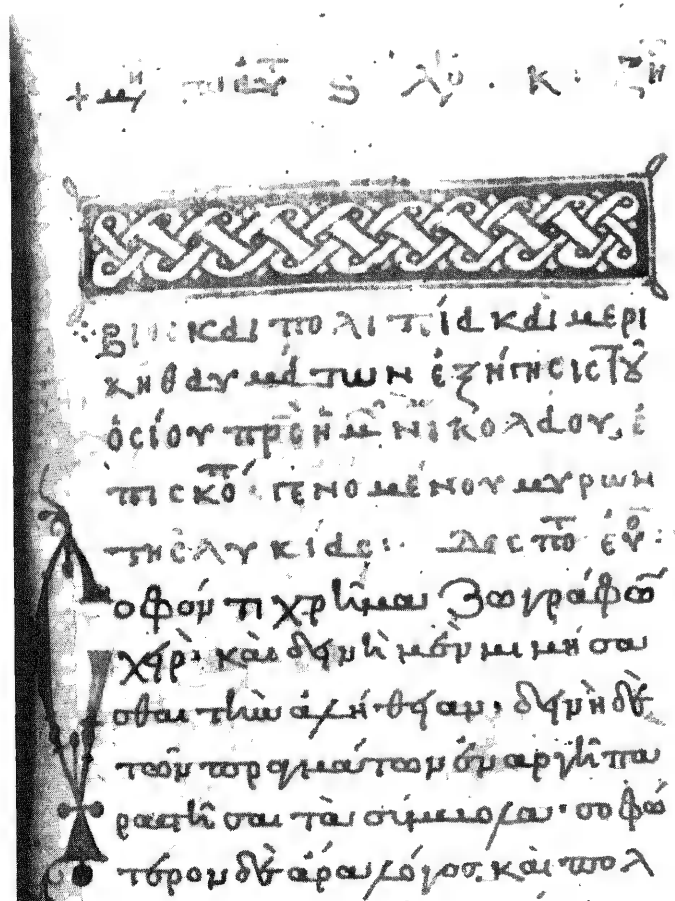 + μη
βίος καὶ πολιτεία καὶ μερι
κὴ θαυμάτων ἐξήγησις τοῦ
ὁσίου πρς ἡμ νικολάου, ἐ
πισκό γενομένου μύρων
τῆς λυκίας: Δεσπο εὐ:
Σοφόν τι χρῆμα ζωγράφω
χείρ· καὶ δεινὴ μὲν μιμήσα
σθαι τὴν ἀλήθειαν· δεινὴ δὲ
τῶν πραγμάτων ἐναργῆ πα
ραστῆσαι τὰ σύμβολα· σοφώ
τερον δὲ ἄρα λόγος καὶ πολ